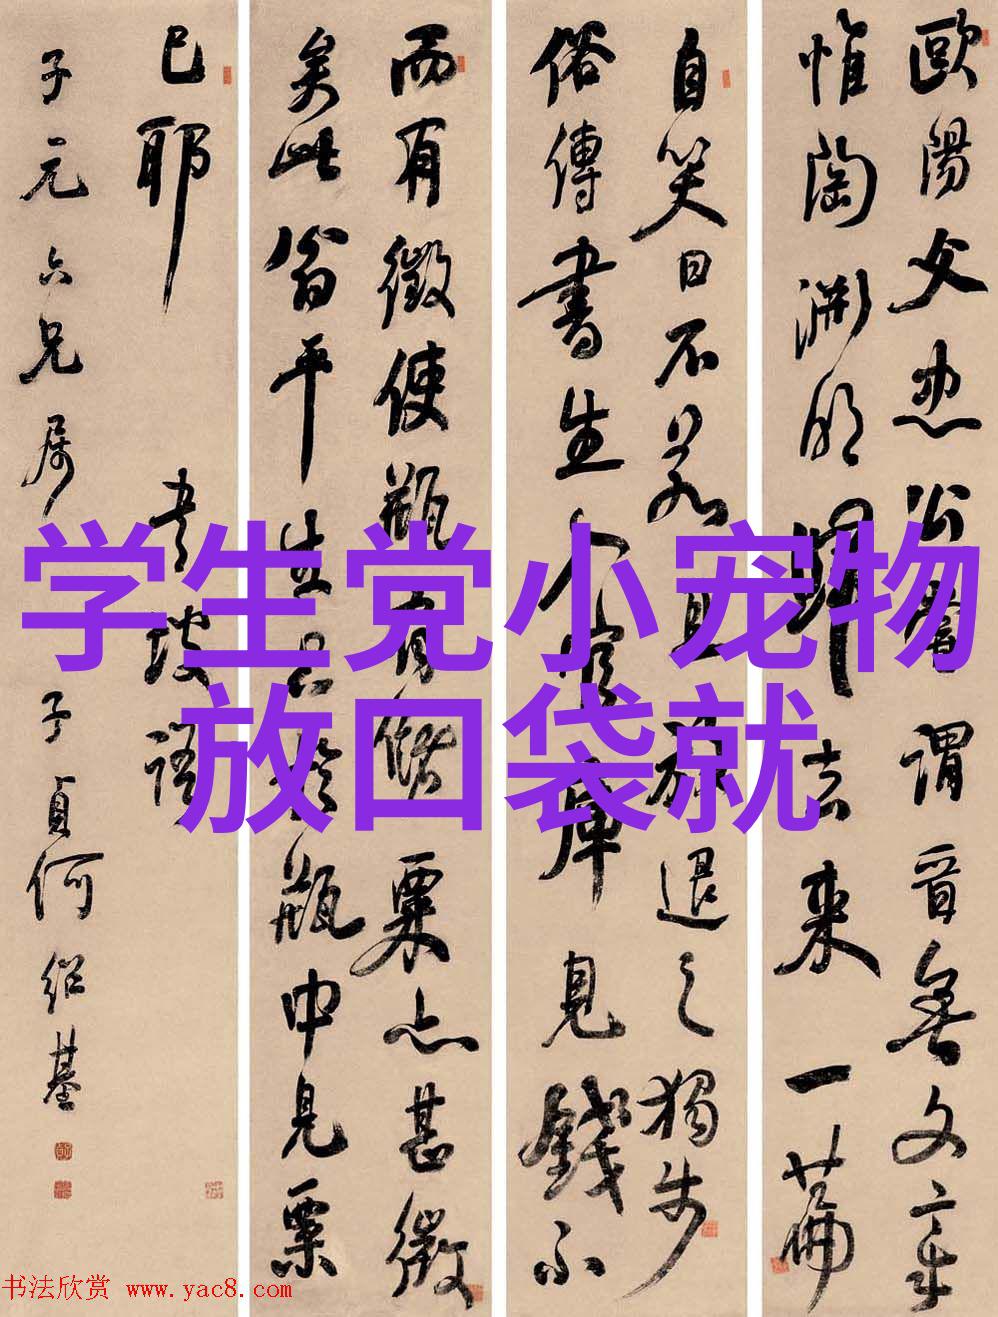 学生党小宠物
放口袋就
歐陽文忠公嘗謂晉無文章
惟陶淵明歸去來一篇
自笑曰不若且放退之獨步
俗傳書生入官庫見錢不
而有徵使瓶有儲粟亦甚微
矣此翁平生只於瓶中見粟
已耶 書坡語
子元六兄屬 子貞何紹基
书法欣赏 www.yac8.com